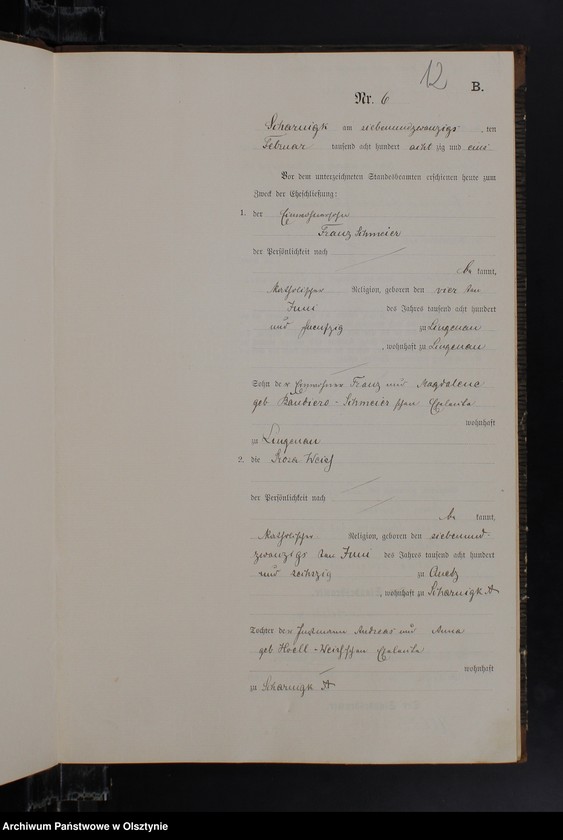 12
B.
Nr. 6
Scharnigk am siebenundzwanzigs ten
Februar tausend acht hundert acht zig und eins
Vor dem unterzeichneten Standesbeamten erschienen heute zum
Zweck der Eheschließung:
1. der Einwohnersohn
Franz Schmeier
der Persönlichkeit nach
be kannt,
katholischer Religion, geboren den vier ten
Juni des Jahres tausend acht hundert
und fuenfzig zu Lingenau
, wohnhaft zu Lingenau
Sohn der Einwohner Franz und Magdalene
geb - Schmeier schen Eheleute
wohnhaft
zu Lingenau
2. die Rosa Weich
der Persönlichkeit nach
be kannt,
katholischer Religion, geboren den siebenund-
zwanzigs ten Juni des Jahres tausend acht hundert
und sechszig zu
, wohnhaft zu Scharnigk
Tochter der Instmann Andreas und Anna
geb Hoell - Weich schen Eheleute
wohnhaft
zu Scharnigk
Archiwum Państwowe w Olsztynie